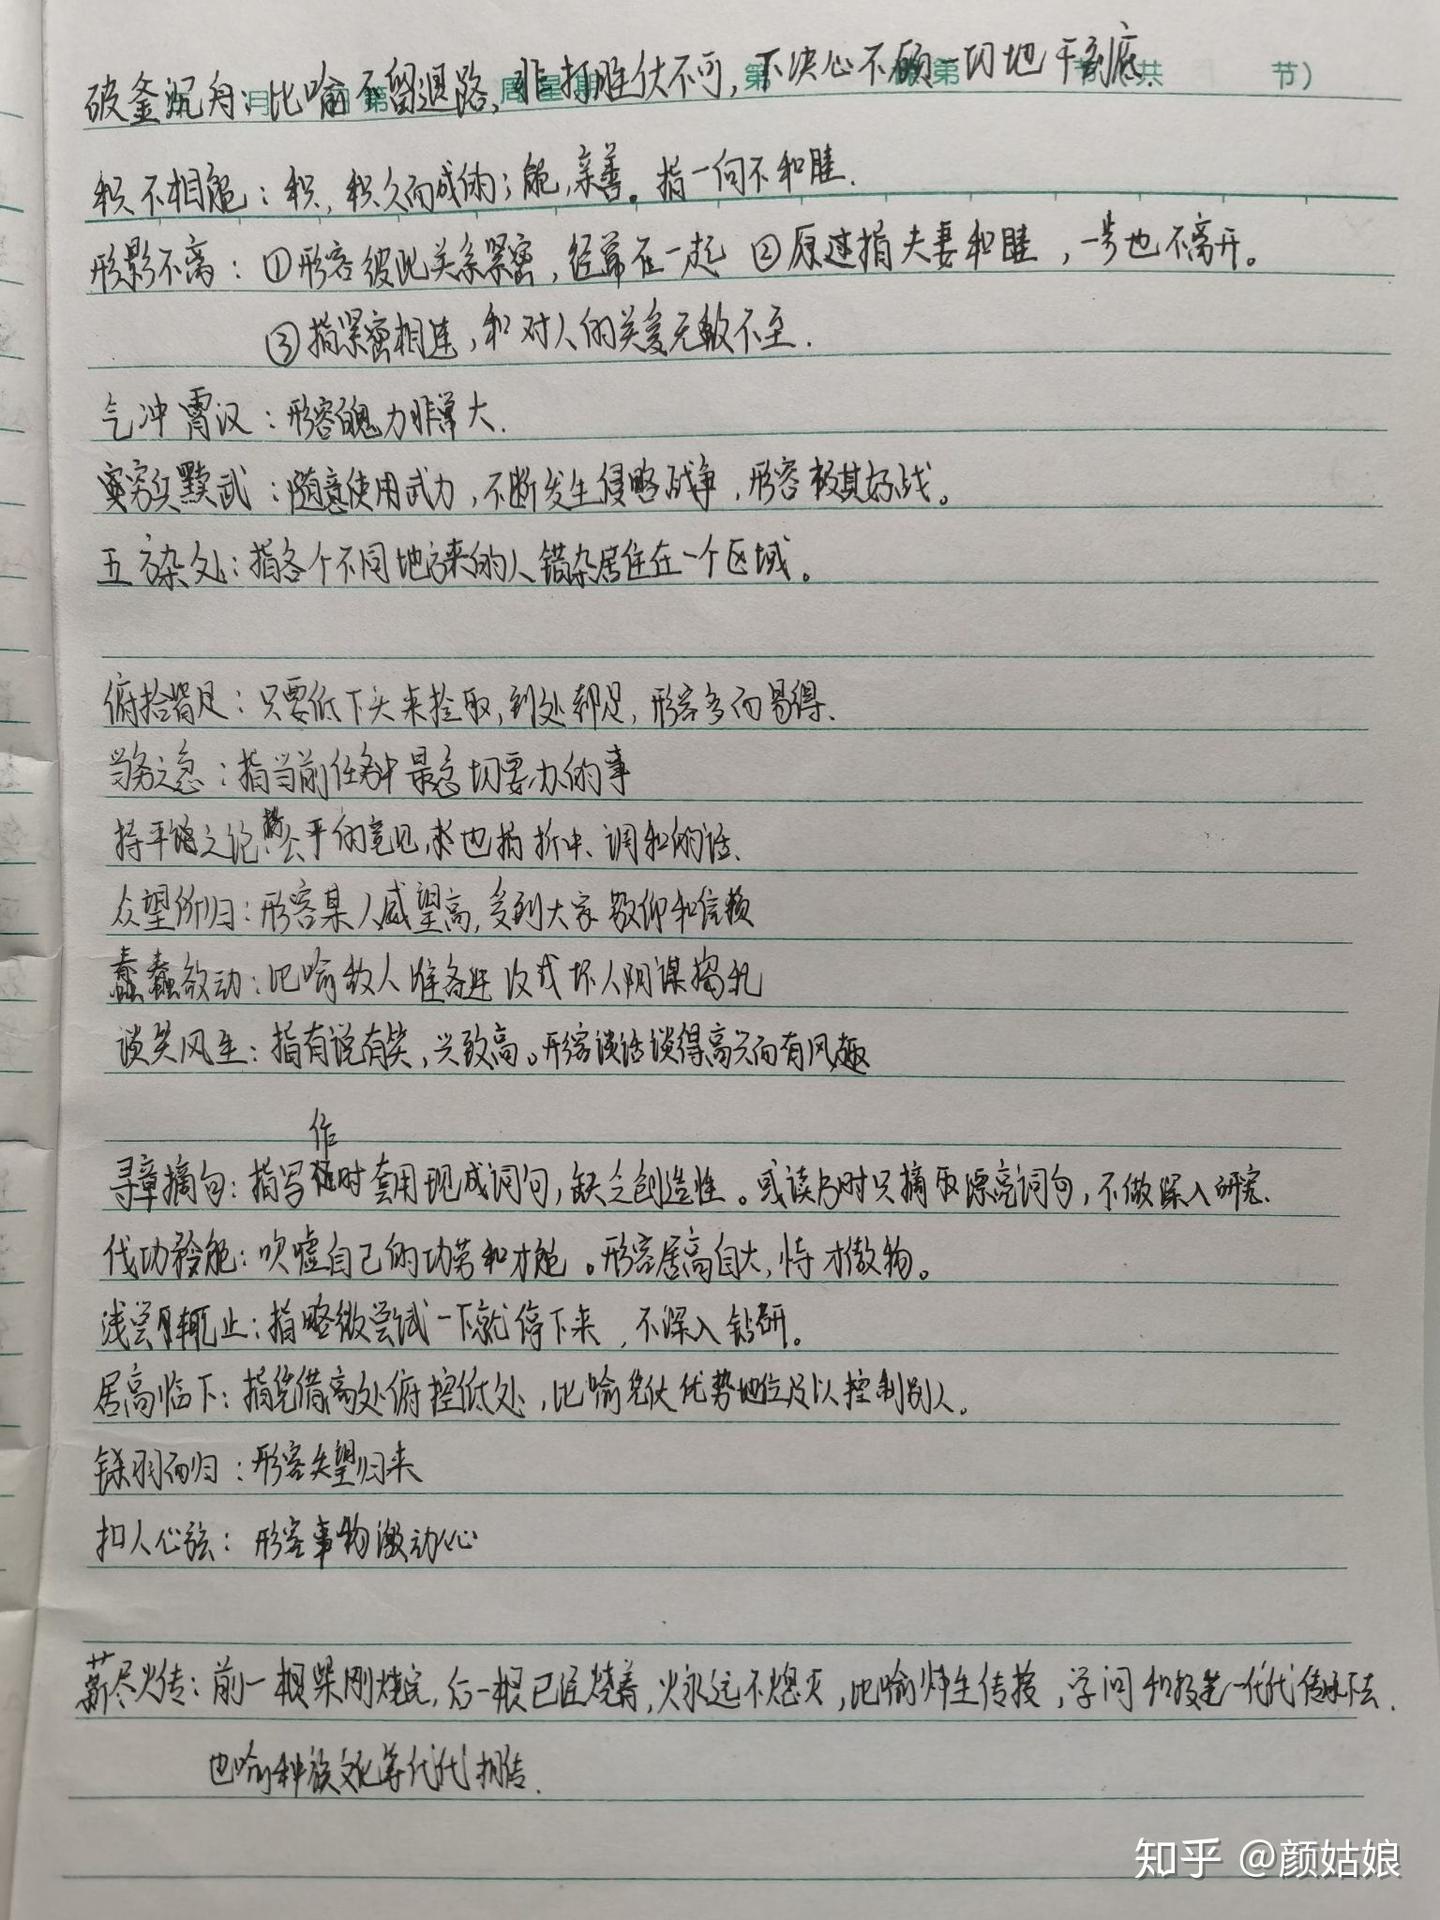 破釜沉舟：比喻不留退路，非打胜仗不可，下决心不顾一切地干到底
节）
积不相能：积，积久而成的；能，亲善。指一向不和睦．
形影不离：①形容彼此关系紧密，经常在一起 ②原还指夫妻和睦，一步也不离开。
③指紧密相连，和对人的关爱无微不至．
气冲霄汉：形容魄力非常大．
穷兵黩武：随意使用武力，不断发生侵略战争，形容极其好战。
五方杂处：指各个不同地方来的人错杂居住在一个区域。
俯拾皆是：只要低下头来捡取，到处都是，形容多而易得、
当务之急：指当前任务中最急切要办的事
持平之论：指公平的意见，也指折中、调和的话、
众望所归：形容某人威望高，受到大家敬仰和信赖
蠢蠢欲动：比喻敌人准备进攻或坏人阴谋捣乱
谈笑风生：指有说有笑，兴致高。形容谈话谈得高兴而有风趣
作
寻章摘句：指写时套用现成词句，缺乏创造性。或读书时只摘取漂亮词句，不做深入研究．
伐功矜能：吹嘘自己的功劳和才能。形容居高自大，恃才傲物。
浅尝辄止：指略微尝试一下就停下来，不深入钻研。
居高临下：指凭借高处俯控低处，比喻凭仗优势地位足以控制别人。
铩羽而归：形容失望归来
扣人心弦：形容事物激动人心
薪尽火传：前一根柴刚烧完，后一根已经烧着，火永远不熄灭，比喻师生传授，学问和技艺一代代传下去．
也喻种族文化等代代相传．
知乎 @颜姑娘